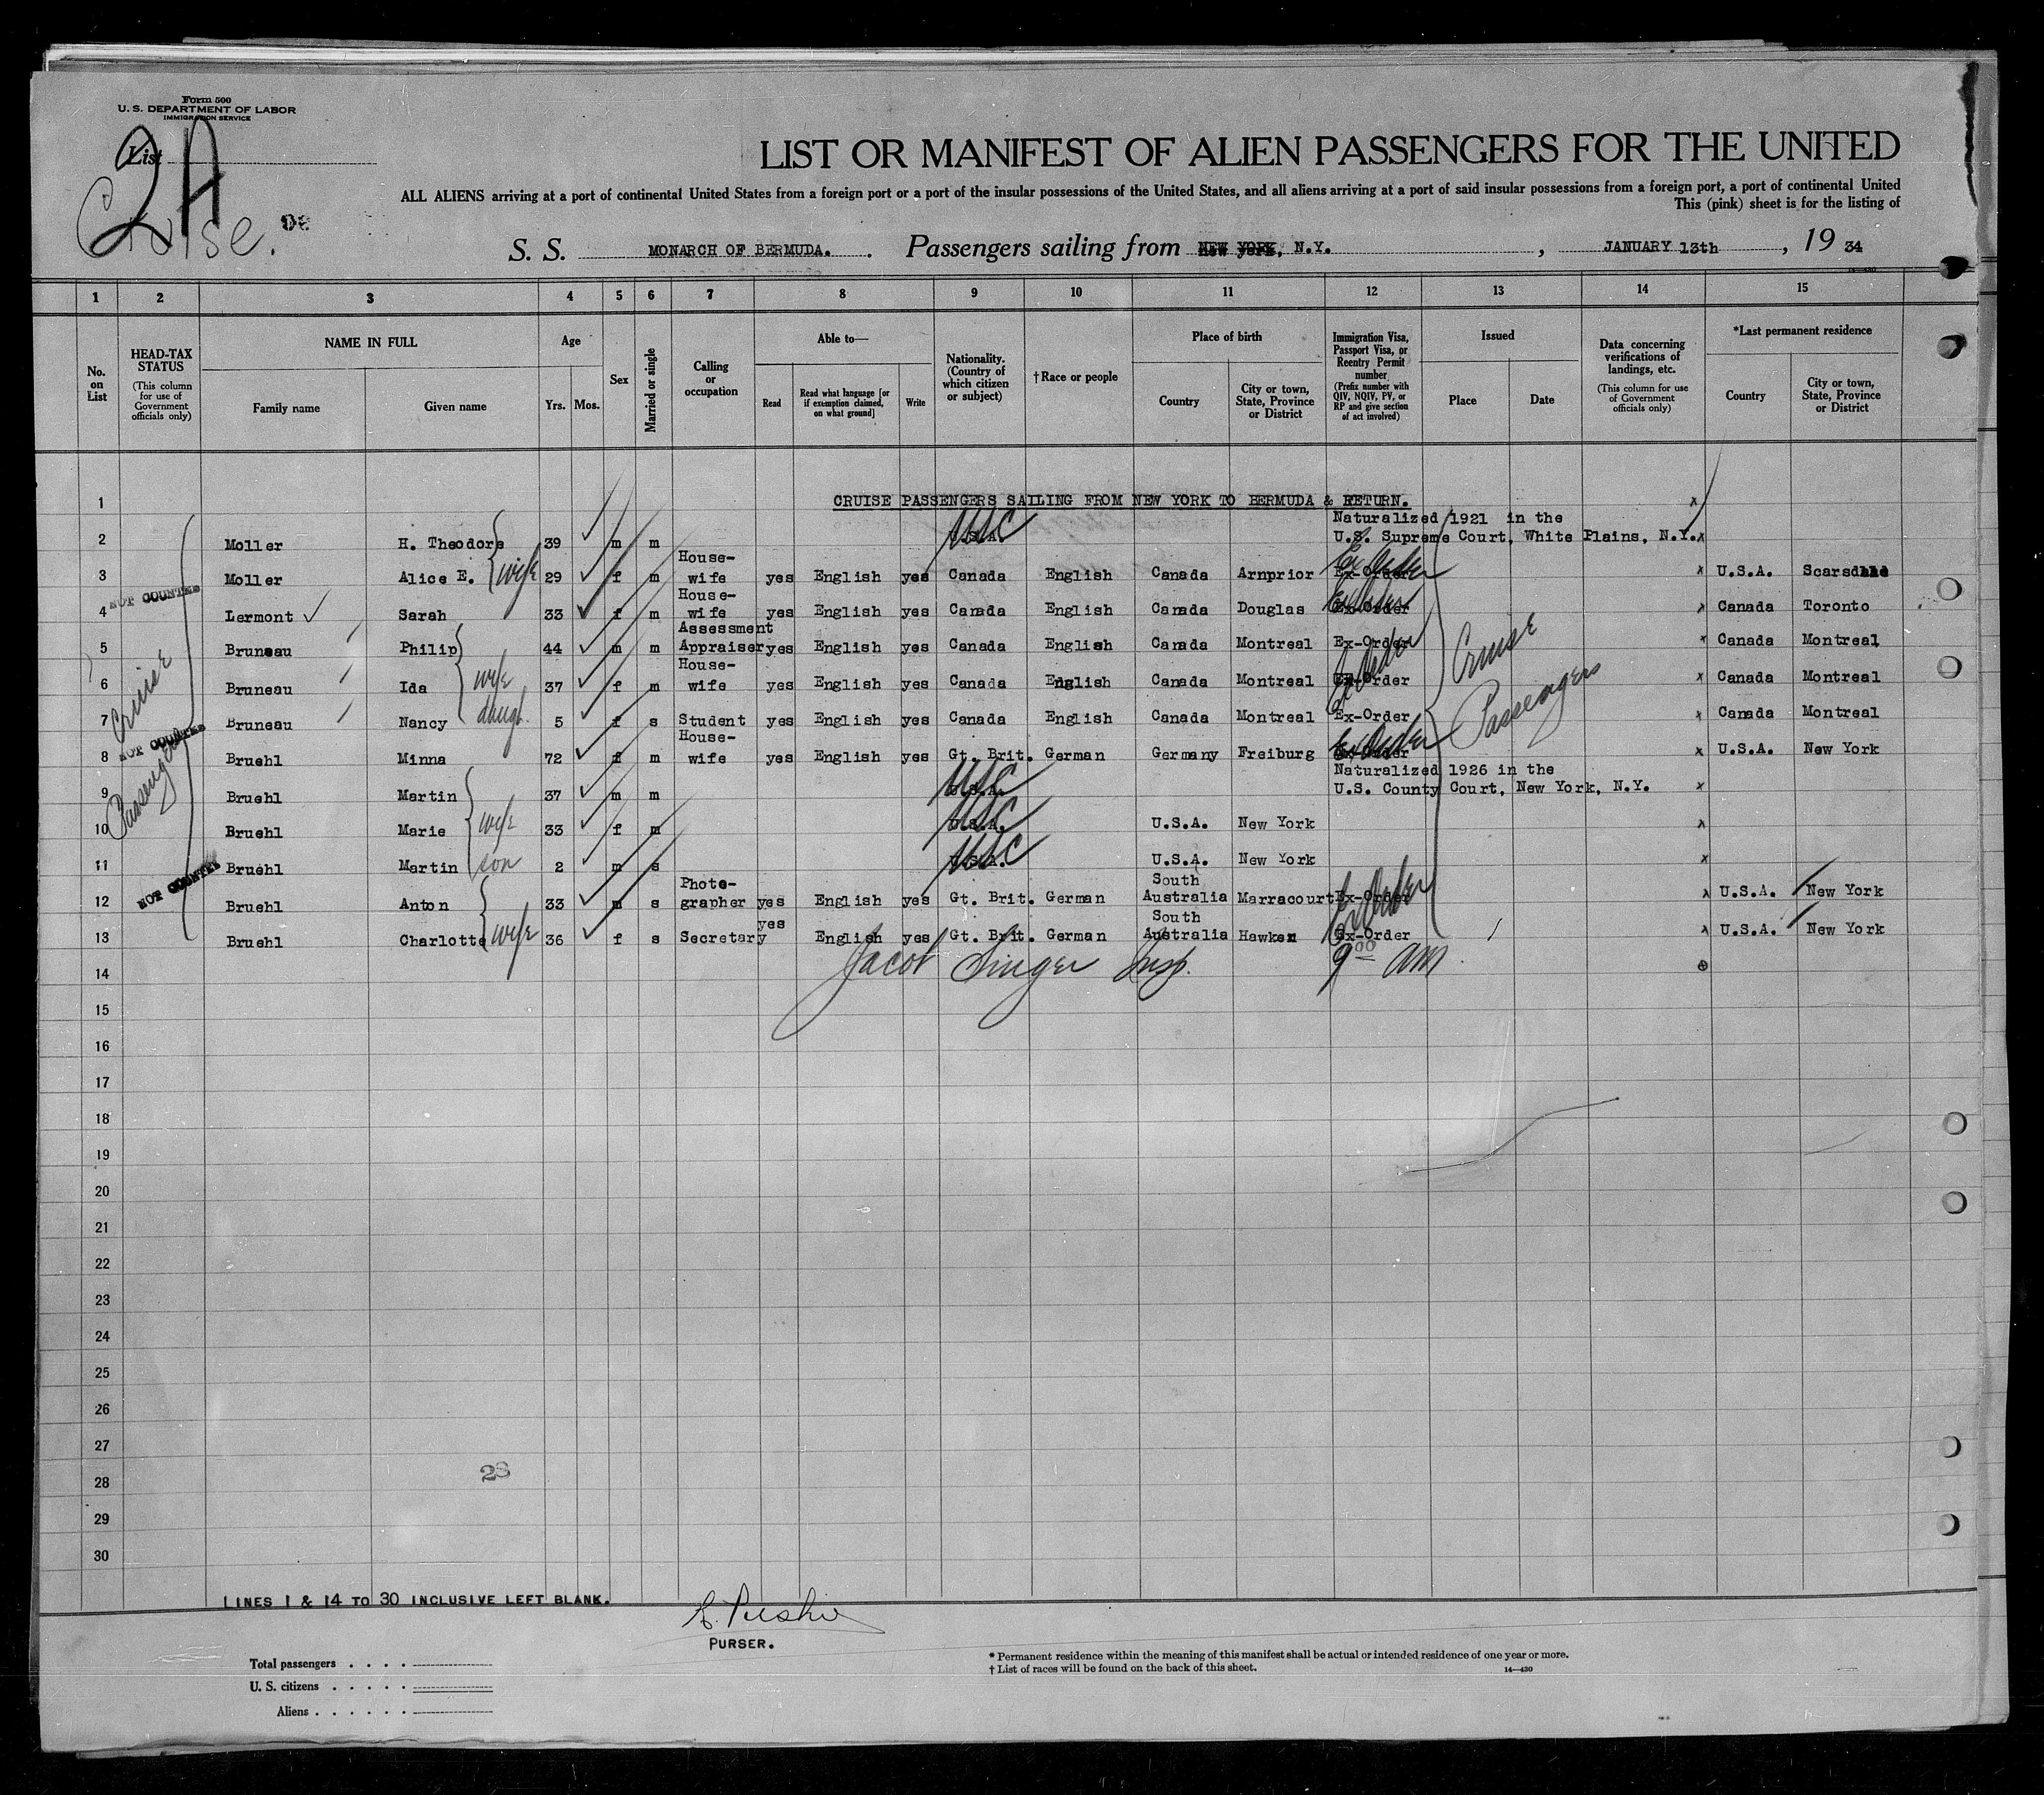 Form 500
U. S. DEPARTMENT OF LABOR
IMMIGRATION SERVICE
List
2A
Cruise.
LIST OR MANIFEST OF ALIEN PASSENGERS FOR THE UNITED
ALL ALIENS arriving at a port of continental United States from a foreign port or a port of the insular possessions of the United States, and all aliens arriving at a port of said insular possessions from a foreign port, a port of continental United
This (pink) sheet is for the listing of
S. S. MONARCH OF BERMUDA. Passengers sailing from NEW YORK, N.Y. , JANUARY 13th , 19 34
14—430
1 2 3 4 5 6 7 8 9 10 11 12 13 14 15
No. on List
HEAD-TAX STATUS (This column for use of Government officials only)
NAME IN FULL
Family name Given name
Age
Yrs. Mos.
Sex
Married or single
Calling or occupation
Able to—
Read Read what language [or if exemption claimed, on what ground] Write
Nationality. (Country of which citizen or subject)
†Race or people
Place of birth
Country City or town, State, Province or District
Immigration Visa, Passport Visa, or Reentry Permit number (Prefix number with QIV, NQIV, PV, or RP and give section of act involved)
Issued
Place Date
Data concerning verifications of landings, etc. (This column for use of Government officials only)
*Last permanent residence
Country City or town, State, Province or District
1 CRUISE PASSENGERS SAILING FROM NEW YORK TO BERMUDA & RETURN. x
Naturalized 1921 in the
2 Moller H. Theodore 39 m m U.S.A. USC U.S. Supreme Court, White Plains, N.Y. x
House-
3 Moller Alice E. wife 29 f m wife yes English yes Canada English Canada Arnprior Ex-Order Ex Order x U.S.A. Scarsdale
NOT COUNTED
House-
4 Lermont Sarah 33 f m wife yes English yes Canada English Canada Douglas Ex-Order Ex Order x Canada Toronto
Assessment
5 Bruneau Philip 44 m m Appraiser yes English yes Canada English Canada Montreal Ex-Order x Canada Montreal
House-
6 Bruneau Ida wife 37 f m wife yes English yes Canada English Canada Montreal Ex-Order Ex Order x Canada Montreal
7 Bruneau Nancy daugt. 5 f s Student yes English yes Canada English Canada Montreal Ex-Order x Canada Montreal
Cruise Passengers
Cruise Passengers
NOT COUNTED
House-
8 Bruehl Minna 72 f m wife yes English yes Gt. Brit. German Germany Freiburg Ex-Order Ex Order x U.S.A. New York
Naturalized 1926 in the
9 Bruehl Martin 37 m m U.S.A. USC U.S. County Court, New York, N.Y. x
10 Bruehl Marie wife 33 f m U.S.A. USC U.S.A. New York x
11 Bruehl Martin son 2 m s U.S.A. USC U.S.A. New York x
NOT COUNTED
Photo- South
12 Bruehl Anton 33 m s grapher yes English yes Gt. Brit. German Australia Marracourt Ex-Order Ex Order x U.S.A. New York
South
13 Bruehl Charlotte wife 36 f s Secretary yes English yes Gt. Brit. German Australia Hawken Ex-Order x U.S.A. New York
14 Jacob Singer Insp. 9 00 am
15
16
17
18
19
20
21
22
23
24
25
26
27
28
29
30
LINES 1 & 14 TO 30 INCLUSIVE LEFT BLANK.
PURSER.
Total passengers
U. S. citizens
Aliens
* Permanent residence within the meaning of this manifest shall be actual or intended residence of one year or more.
† List of races will be found on the back of this sheet.
14—430